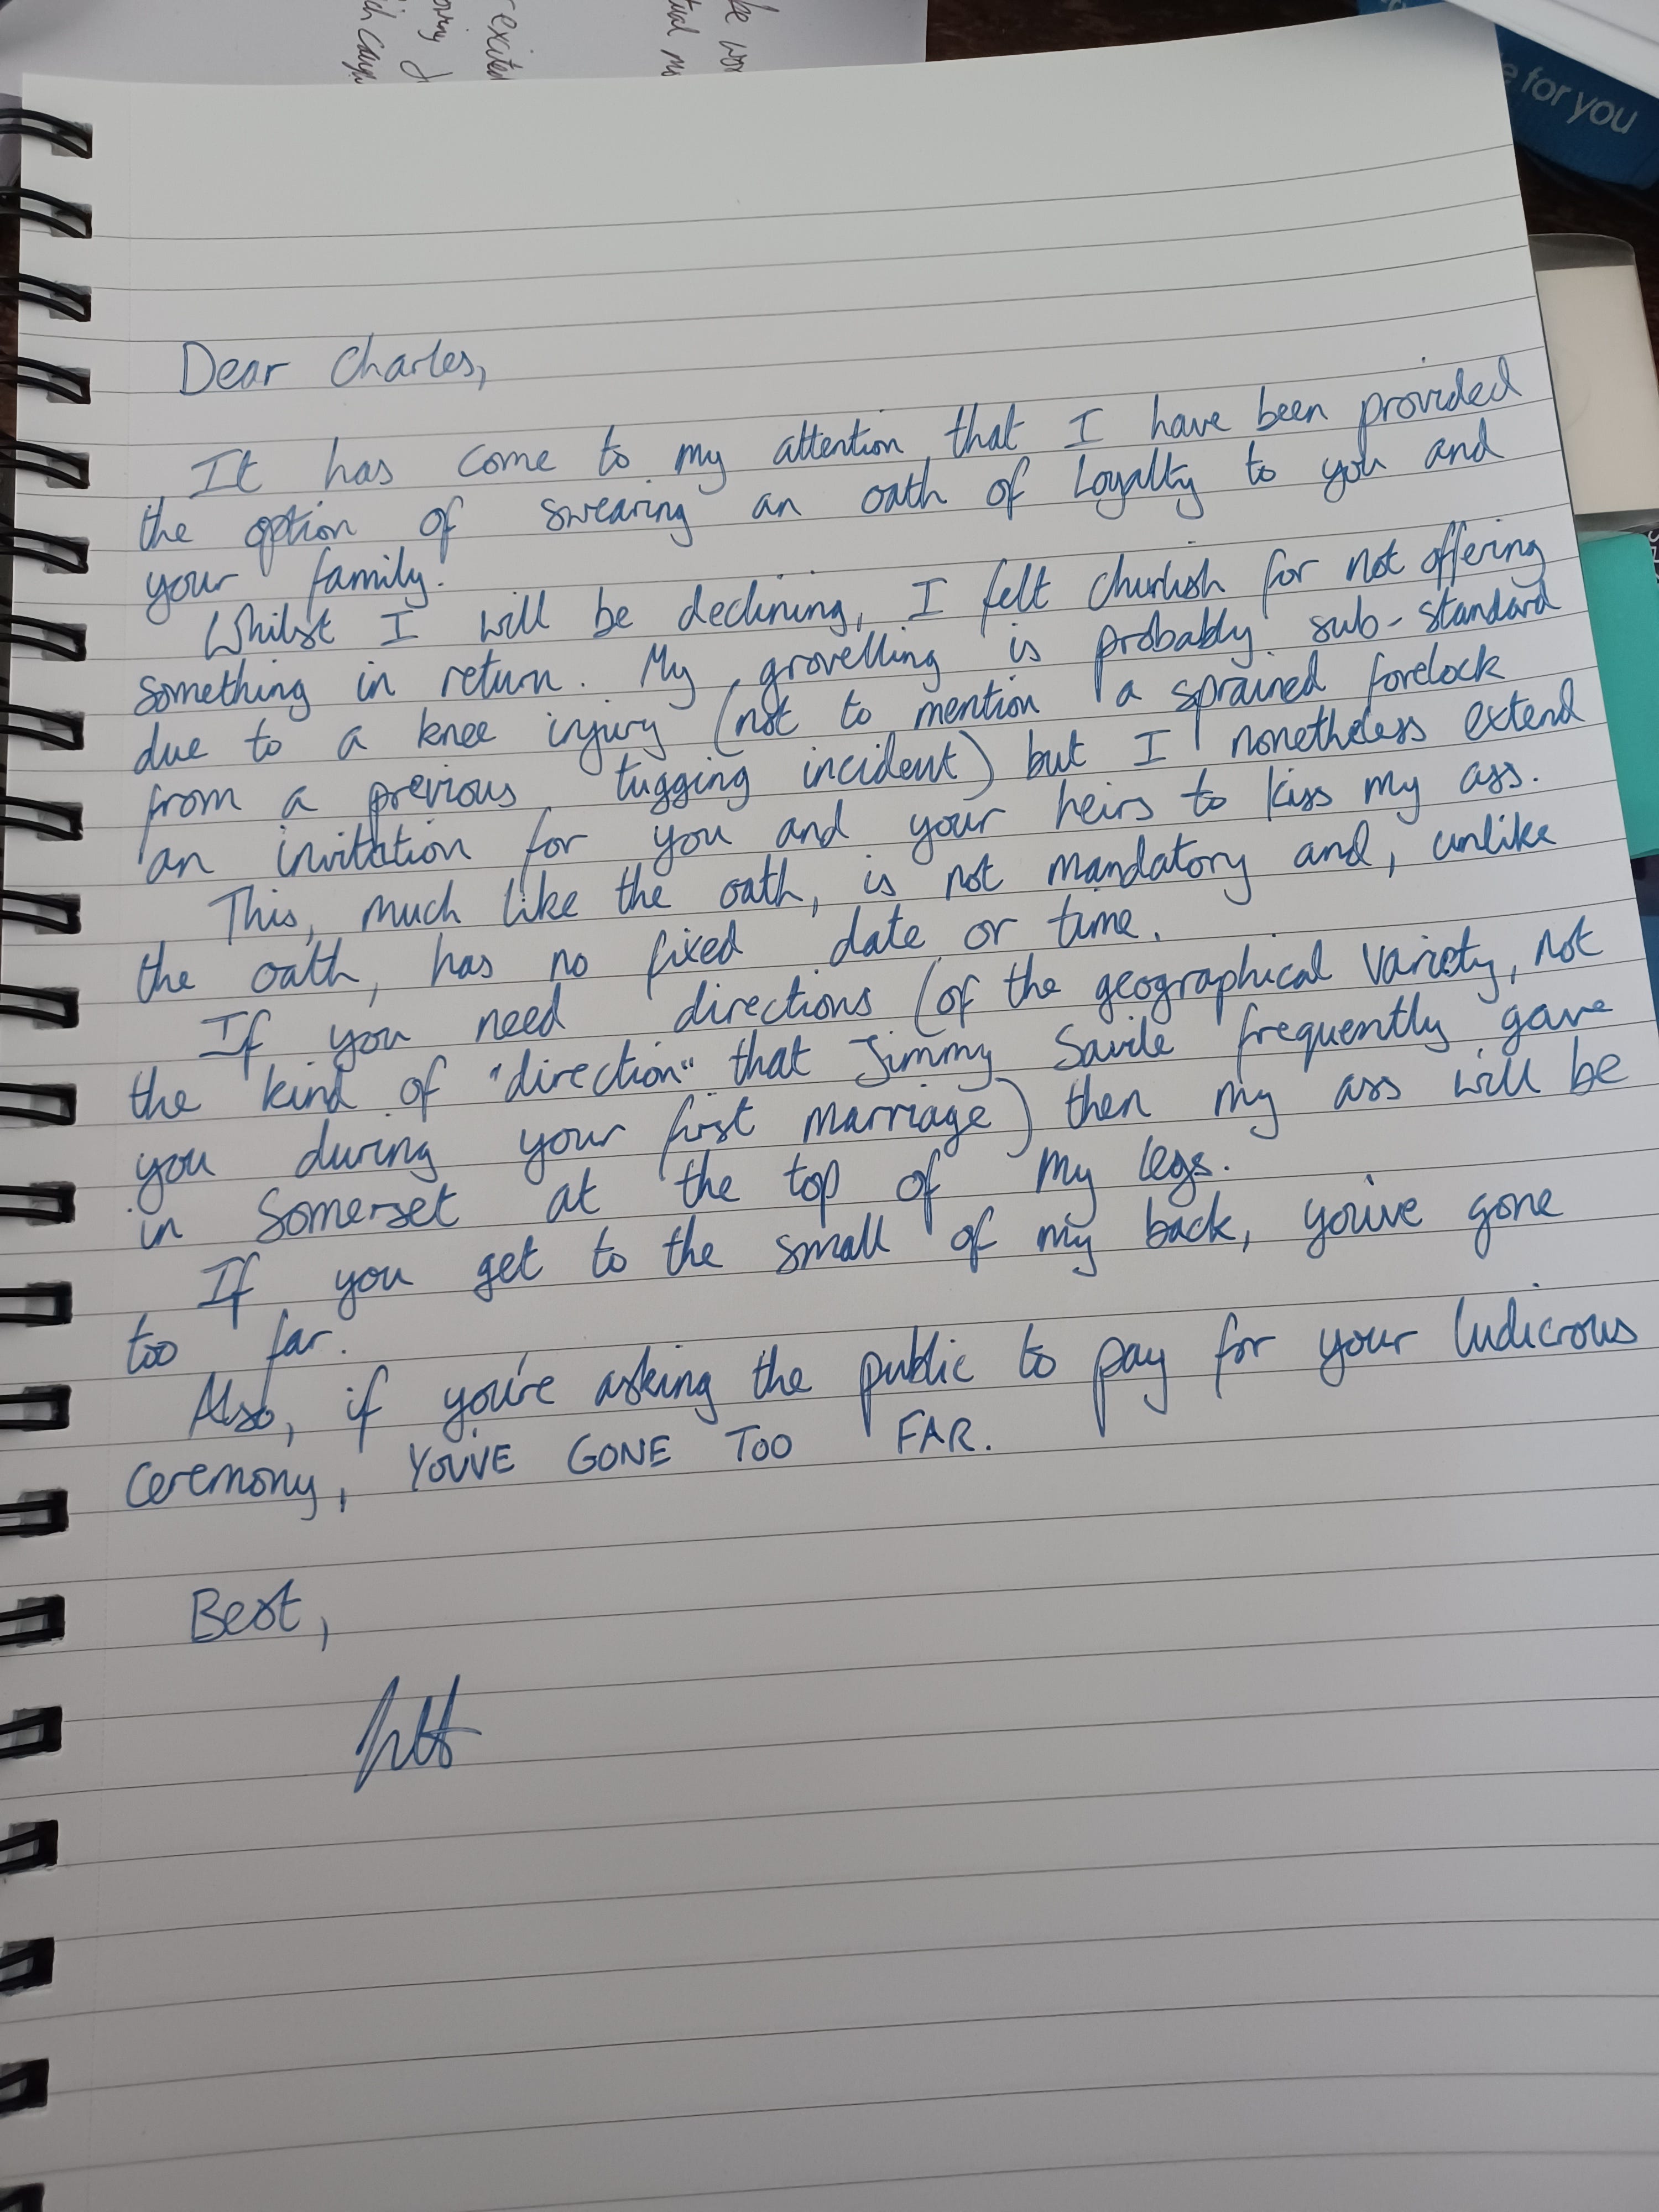 be wor
tual m
excited
for you
Dear Charles,
It has come to my attention that I have been provided
the option of swearing an oath of loyalty to you and
your family.
Whilst I will be declining, I felt churlish for not offering
something in return. My grovelling is probably sub-standard
due to a knee injury (not to mention a sprained forelock
from a previous tugging incident) but I nonetheless extend
an invitation for you and your heirs to kiss my ass.
This, much like the oath, is not mandatory and, unlike
the oath, has no fixed date or time.
If you need directions (of the geographical variety, not
the kind of "direction" that Jimmy Savile frequently gave
you during your first marriage) then my ass will be
in Somerset at the top of my legs.
If you get to the small of my back, you've gone
too far.
Also, if you're asking the public to pay for your ludicrous
ceremony, YOU'VE GONE TOO FAR.
Best,